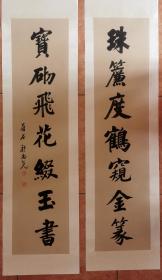 珠簾度鶴窺金篆
寶砌飛花綴玉書